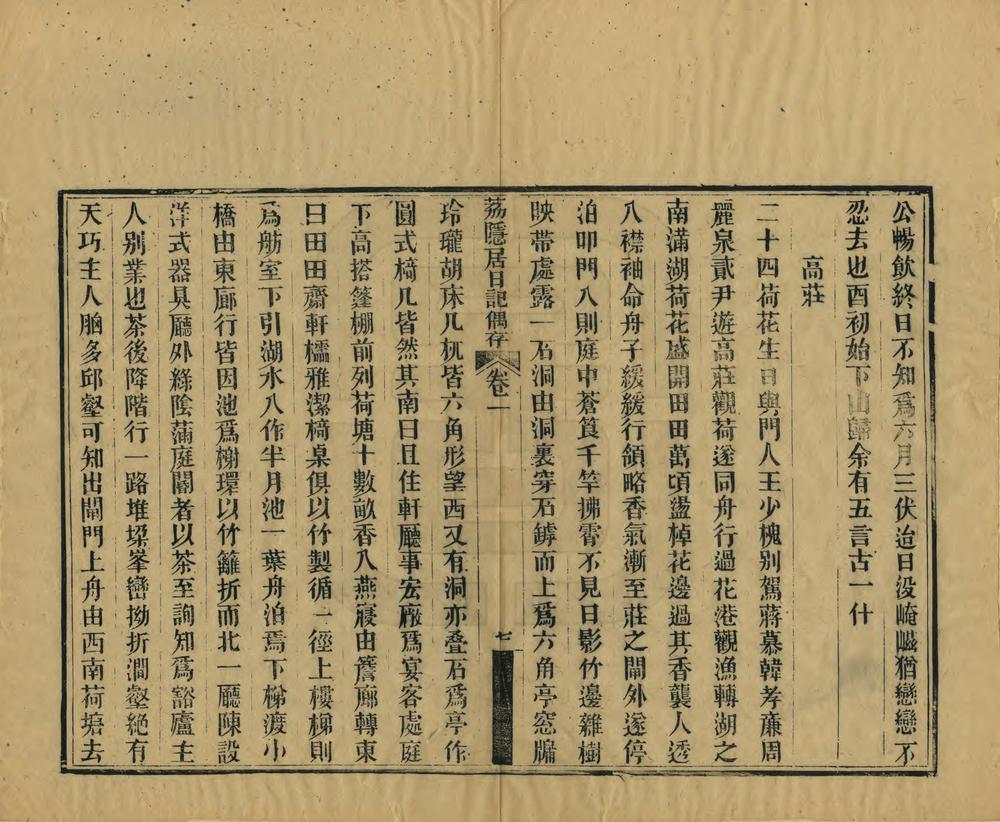 公暢飲終日不知爲六月三伏迨日没崦嵫猶戀戀不
忍去也酉初始下山歸余有五言古一什
高莊
二十四荷花生日與門人王少槐别駕蔣慕韓孝亷周
麗泉貳尹遊高莊觀荷遂同舟行過花港觀漁轉湖之
南滿湖荷花盛開田田萬頃盪棹花邊過其香襲人透
入襟袖命舟子緩緩行領略香氣漸至莊之閘外遂停
泊叩門入則庭中蒼筤千竿拂霄不見日影竹邊雜樹
映帶處露一石洞由洞裏穿石罅而上爲六角亭窓牖
荔隱居日記偶存 卷一 七
玲瓏胡床几杌皆六角形望西又有洞亦叠石爲亭作
圓式椅几皆然其南曰且住軒廳事宏敞爲宴客處庭
下高搭篷棚前列荷塘十數畝香入燕寢由簷廊轉東
曰田田齋軒櫺雅潔椅桌俱以竹製循一徑上樓梯則
爲舫室下引湖水入作半月池一葉舟泊焉下梯渡小
橋由東廊行皆因池爲榭環以竹籬折而北一廳陳設
洋式器具廳外綠陰蒲庭閽者以茶至詢知爲豁廬主
人别業也茶後降階行一路堆垜峯巒拗折澗壑絕有
天巧主人胸多邱壑可知出閘門上舟由西南荷塘去